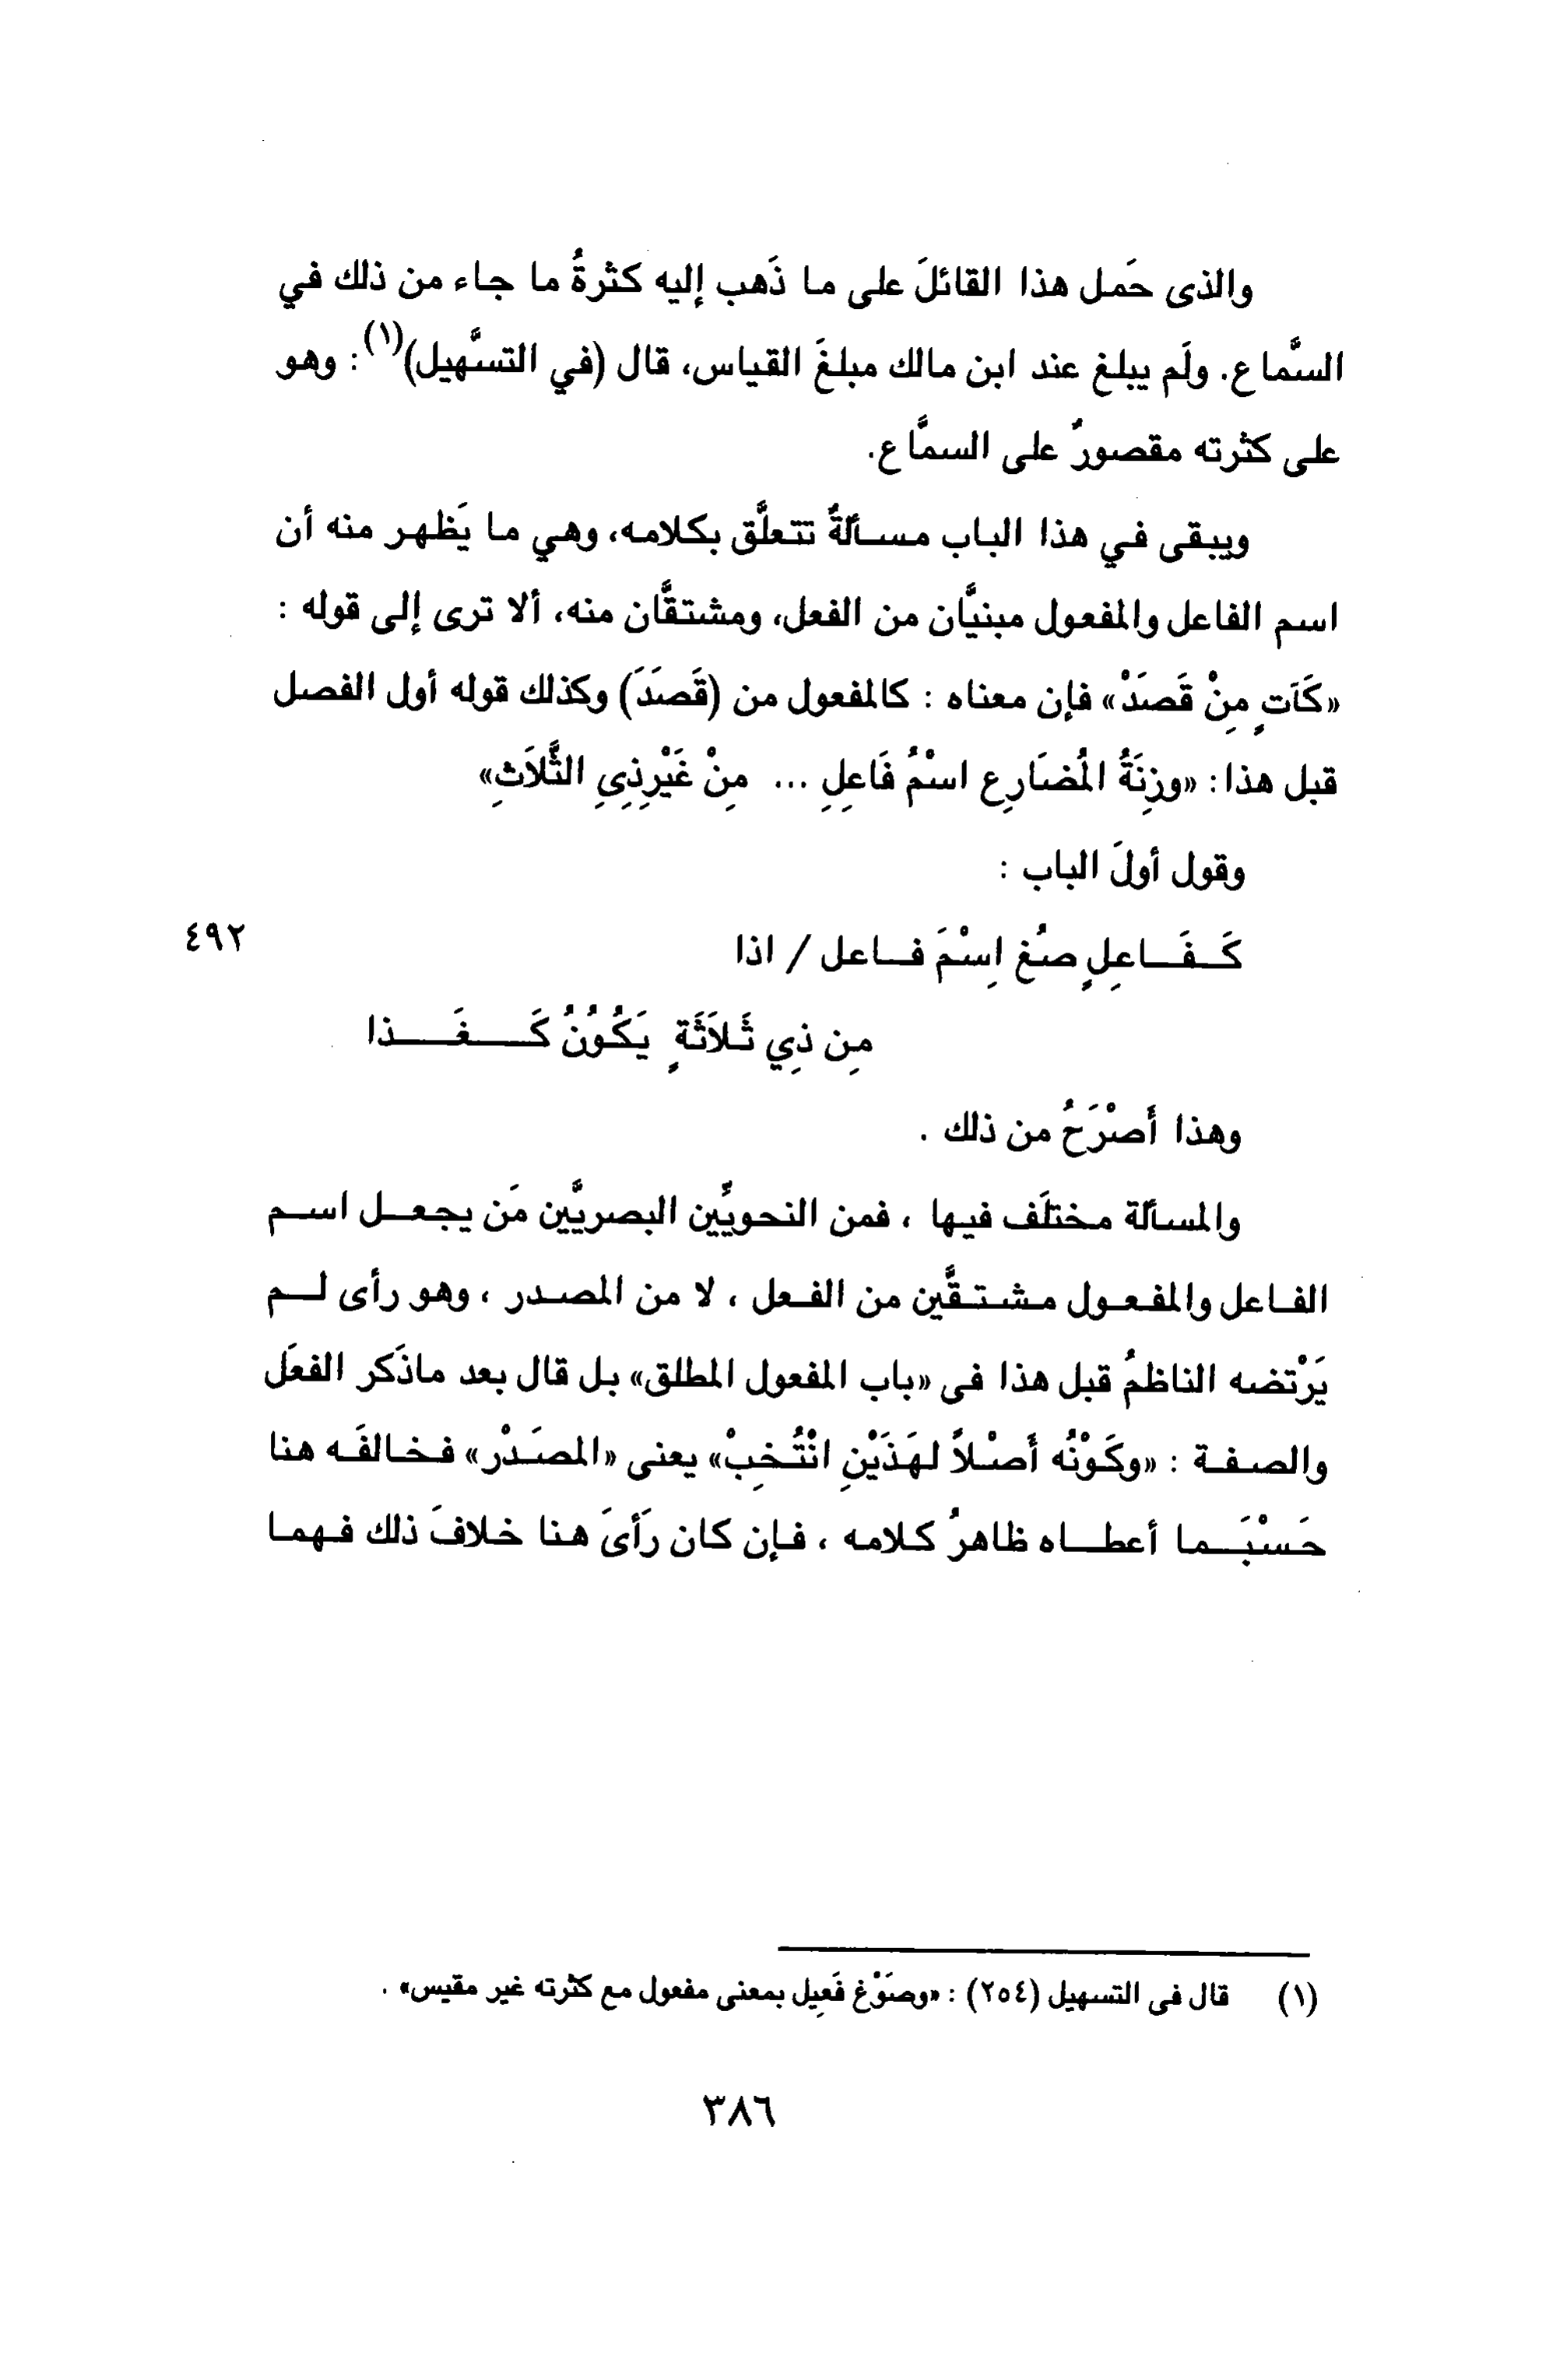 والذى حَمل هذا القائلَ على ما ذَهب إليه كثرةُ ما جاء من ذلك في
السمَّاع. ولَم يبلغ عند ابن مالك مبلغَ القياس، قال (في التسَّهيل)(١): وهو
على كثرته مقصورٌ على السمَّاع.
ويبقى في هذا الباب مسألةٌ تتعلَّق بكلامه، وهي ما يَظهر منه أن
اسم الفاعل والمفعول مبنيَّان من الفعل، ومشتقَّان منه، ألا ترى إلى قوله :
«كَآتٍ مِنْ قَصَدْ» فإن معناه : كالمفعول من (قَصَدَ) وكذلك قوله أول الفصل
قبل هذا: «وزِنَةُ المُضَارِع اسْمُ فَاعِلِ ... مِنْ غَيْرِذِىِ الثَّلاَثِ»
وقول أولَ الباب :
كَـفَـاعِلٍ صُغ اِسْمَ فـاعل / اذا
٤٩٢
مِن ذِي ثَلاَثَةٍ يَكُوُنُ كَـغَـذا
وهذا أَصْرَحُ من ذلك .
والمسألة مختلَف فيها ، فمن النحويِّين البصريَّين مَن يجعل اسم
الفاعل والمفعول مشتقَّين من الفعل ، لا من المصدر ، وهو رأى لم
يَرْتضه الناظمُ قبل هذا فى «باب المفعول المطلق» بل قال بعد ماذَكر الفعَل
والصفة : «وكَوْنُه أَصْلاً لهَذَيْنِ انْتُخِبْ» يعنى «المصَدْر» فخالفَه هنا
حَسْبَما أعطاه ظاهرُ كلامه ، فإن كان رَأىَ هنا خلافَ ذلك فهما
(١) قال فى التسهيل (٢٥٤) : «وصَوْغ فَعِيل بمعنى مفعول مع كثرته غير مقيس» .
٣٨٦